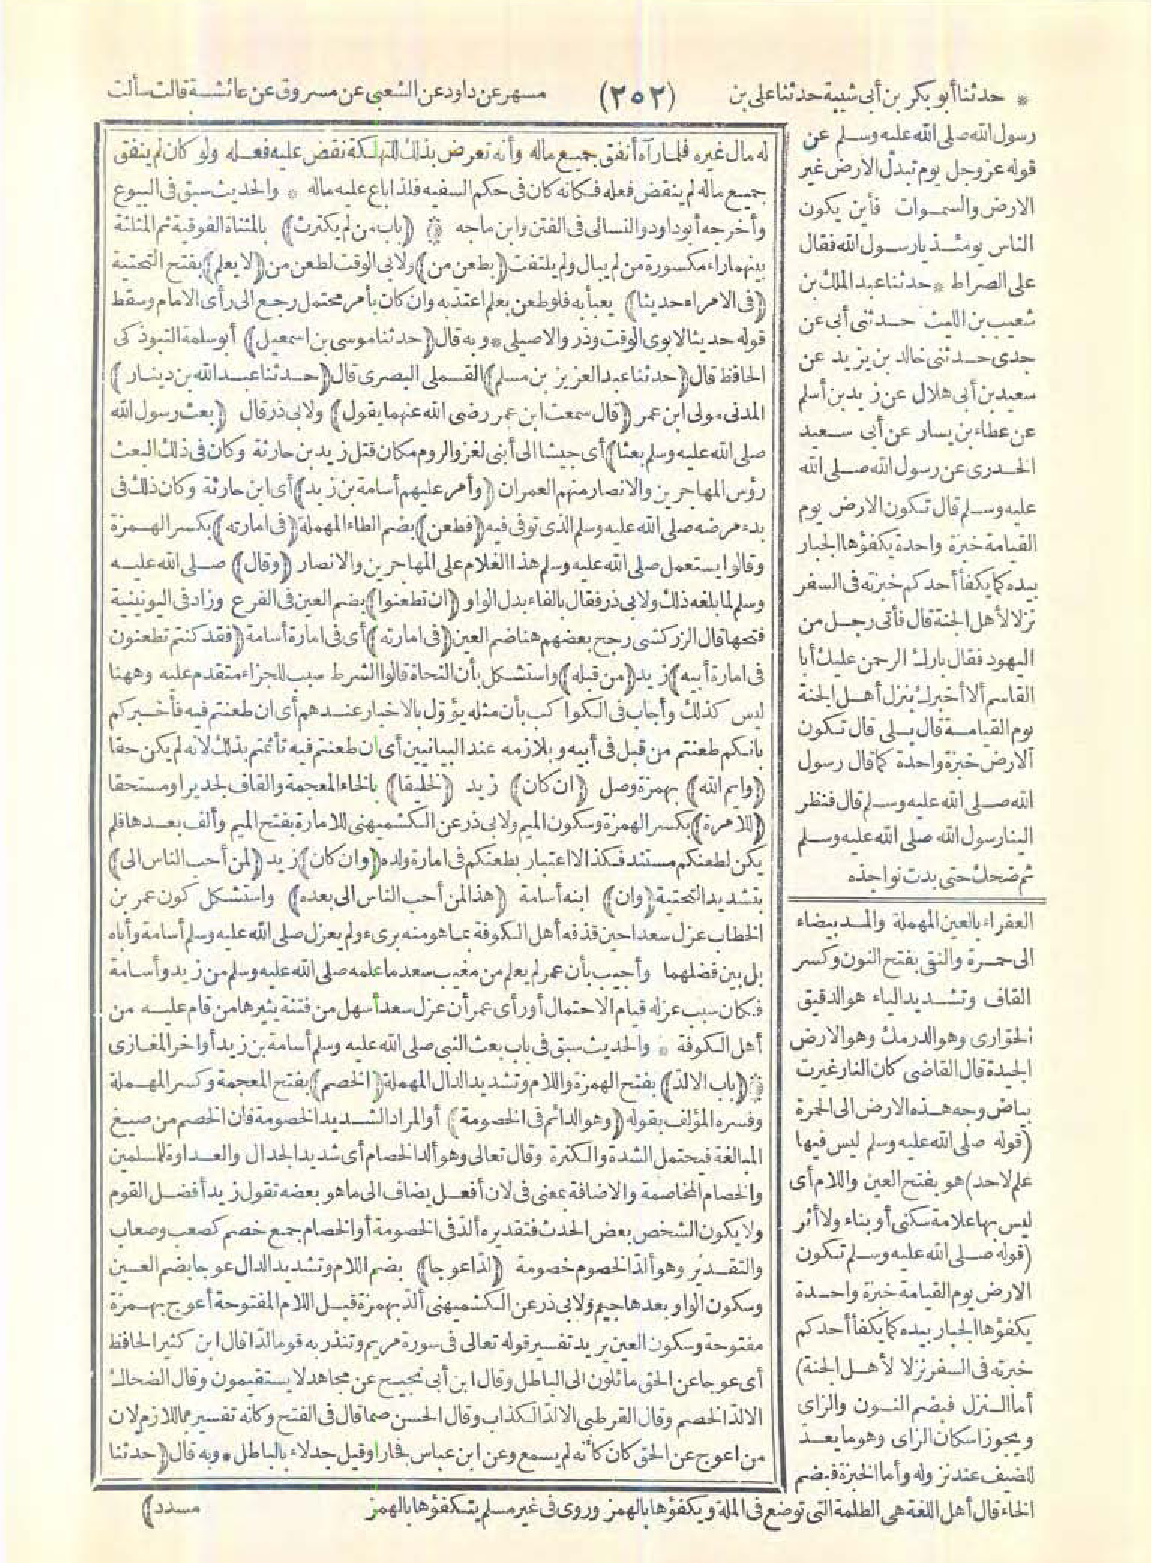 * حدثنا أبو بكر بن أبى شيبة حدثنا على بن (٢٥٢) مسهر عن داود عن الشعبى عن مسروق عن عائشة قالت سألت
رسول الله صلى الله عليه وسلم عن
قوله عز وجل يوم تبدل الارض غير
الارض والسموات فأين يكون
الناس يومئذ يا رسول الله فقال
على الصراط * حدثنا عبد الملك بن
شعيب بن الليث حدثنى أبى عن
جدى حدثنى خالد بن يزيد عن
سعيد بن أبى هلال عن زيد بن أسلم
عن عطاء بن يسار عن أبى سعيد
الخدرى عن رسول الله صلى الله
عليه وسلم قال تكون الارض يوم
القيامة خبزة واحدة يكفؤها الجبار
بيده كما يكفأ أحدكم خبزته فى السفر
نزلا لأهل الجنة قال فأتى رجل من
اليهود فقال بارك الرحمن عليك أبا
القاسم ألا أخبرك بنزل أهل الجنة
يوم القيامة قال بلى قال تكون
الارض خبزة واحدة كما قال رسول
الله صلى الله عليه وسلم قال فنظر
الينا رسول الله صلى الله عليه وسلم
ثم ضحك حتى بدت نواجذه
العفراء بالعين المهملة والمد بيضاء
الى حمرة والنقى بفتح النون وكسر
القاف وتشديد الياء هو الدقيق
الحوارى وهو الدرمك وهو الارض
الجيدة قال القاضى كان النار غيرت
بياض وجه هذه الارض الى الحمرة
(قوله صلى الله عليه وسلم ليس فيها
علم لاحد) هو بفتح العين واللام أى
ليس بها علامة سكنى أو بناء ولا أثر
(قوله صلى الله عليه وسلم تكون
الارض يوم القيامة خبزة واحدة
يكفؤها الجبار بيده كما يكفأ أحدكم
خبزته فى السفر نزلا لأهل الجنة)
أما النزل فبضم النون والزاى
ويجوز اسكان الزاى وهو ما يعد
للضيف عند نزوله وأما الخبزة فبضم
له مال غيره فلما رآه أنفق جميع ماله وأنه تعرض بذلك للتهلكة نقض عليه فعله ولو كان لم ينفق
جميع ماله لم ينقض فعله فكانه كان فى حكم السفيه فلذا باع عليه ماله * والحديث سبق فى البيوع
وأخرجه أبو داود والنسائى فى الفتن وابن ماجه ﴿ (باب من لم يكترث) بالمثناة الفوقية ثم المثلثة
بينهما راء مكسورة من لم يبال ولم يلتفت (بطعن من) ولابى الوقت لطعن من (لا يعلم) بفتح التحتية
(فى الامراء حديثا) يعبأ به فلو طعن بعلم اعتد به وان كان بأمر محتمل رجع الى رأى الامام وسقط
قوله حديثا لابوى الوقت وذر والاصيلى * وبه قال (حدثنا موسى بن اسمعيل) أبو سلمة التبوذكى
الحافظ قال (حدثنا عبد العزيز بن مسلم) القسملى البصرى قال (حدثنا عبد الله بن دينار)
المدنى مولى ابن عمر (قال سمعت ابن عمر رضى الله عنهما يقول) ولابى ذر قال (بعث رسول الله
صلى الله عليه وسلم بعثا) أى جيشا الى أبنى لغزو الروم مكان قتل زيد بن حارثة وكان فى ذلك البعث
رؤس المهاجرين والانصار منهم العمران (وأمر عليهم أسامة بن زيد) أى ابن حارثة وكان ذلك فى
بدء مرضه صلى الله عليه وسلم الذى توفى فيه (فطعن) بضم الطاء المهملة (فى امارته) بكسر الهمزة
وقالوا يستعمل صلى الله عليه وسلم هذا الغلام على المهاجرين والانصار (وقال) صلى الله عليه
وسلم لما بلغه ذلك ولابى ذر فقال بالفاء بدل الواو (ان تطعنوا) بضم العين فى الفرع وزاد فى اليونينية
فتحها قال الزركشى رجح بعضهم هنا ضم العين (فى امارته) أى فى امارة أسامة (فقد كنتم تطعنون
فى امارة أبيه) زيد (من قبله) واستشكل بأن النحاة قالوا الشرط سبب للجزاء متقدم عليه وههنا
ليس كذلك وأجاب فى الكواكب بأن مثله يؤول بالاخبار عندهم أى ان طعنتم فيه فأخبركم
بانكم طعنتم من قبل فى أبيه وبلازمه عند البيانيين أى ان طعنتم فيه تأثمتم بذلك لانه لم يكن حقا
(وايم الله) بهمزة وصل (ان كان) زيد (لخليقا) بالخاء المعجمة والقاف لجديرا ومستحقا
(للامرة) بكسر الهمزة وسكون الميم ولابى ذر عن الكشميهنى للامارة بفتح الميم وألف بعدها فلم
يكن لطعنكم مستند فكذا لا اعتبار بطعنكم فى امارة ولده (وان كان) زيد (لمن أحب الناس الى)
بتشديد التحتية (وان) ابنه أسامة (هذا لمن أحب الناس الى بعده) واستشكل كون عمر بن
الخطاب عزل سعدا حين قذفه أهل الكوفة بما هو منه برىء ولم يعزل صلى الله عليه وسلم أسامة وأباه
بل بين فضلهما وأجيب بأن عمر لم يعلم من مغيب سعد ما علمه صلى الله عليه وسلم من زيد وأسامة
فكان سبب عزله قيام الاحتمال أو رأى عمر أن عزل سعد أسهل من فتنة يثيرها من قام عليه من
أهل الكوفة * والحديث سبق فى باب بعث النبى صلى الله عليه وسلم أسامة بن زيد أواخر المغازى
﴿ (باب الالد) بفتح الهمزة واللام وتشديد الدال المهملة (الخصم) بفتح المعجمة وكسر المهملة
وفسره المؤلف بقوله (وهو الدائم فى الخصومة) أو المراد الشديد الخصومة فان الخصم من صيغ
المبالغة فيحتمل الشدة والكثرة وقال تعالى وهو ألد الخصام أى شديد الجدال والعداوة للمسلمين
والخصام المخاصمة والاضافة بمعنى فى لان أفعل يضاف الى ما هو بعضه تقول زيد أفضل القوم
ولا يكون الشخص بعض الحدث فتقديره ألد فى الخصومة أو الخصام جمع خصم كصعب وصعاب
والتقدير وهو ألد الخصوم خصومة (لدا عوجا) بضم اللام وتشديد الدال عوجا بضم العين
وسكون الواو بعدها جيم ولابى ذر عن الكشميهنى ألد بهمزة قبل اللام المفتوحة أعوج بهمزة
مفتوحة وسكون العين يريد تفسير قوله تعالى فى سورة مريم وتنذر به قوما لدا قال ابن كثير الحافظ
أى عوجا عن الحق مائلون الى الباطل وقال ابن أبى نجيح عن مجاهد لا يستقيمون وقال الضحاك
الالد الخصم وقال القرطبى الالد الكذاب وقال الحسن صما قال فى الفتح وكانه تفسير باللازم لان
من اعوج عن الحق كان كأنه لم يسمع وعن ابن عباس فجارا وقيل جدلاء بالباطل * وبه قال (حدثنا
الخاء قال أهل اللغة هى الظلمة التى توضع فى الملة ويكفؤها بالهمز وروى فى غير مسلم يتكفؤها بالهمز مسدد)